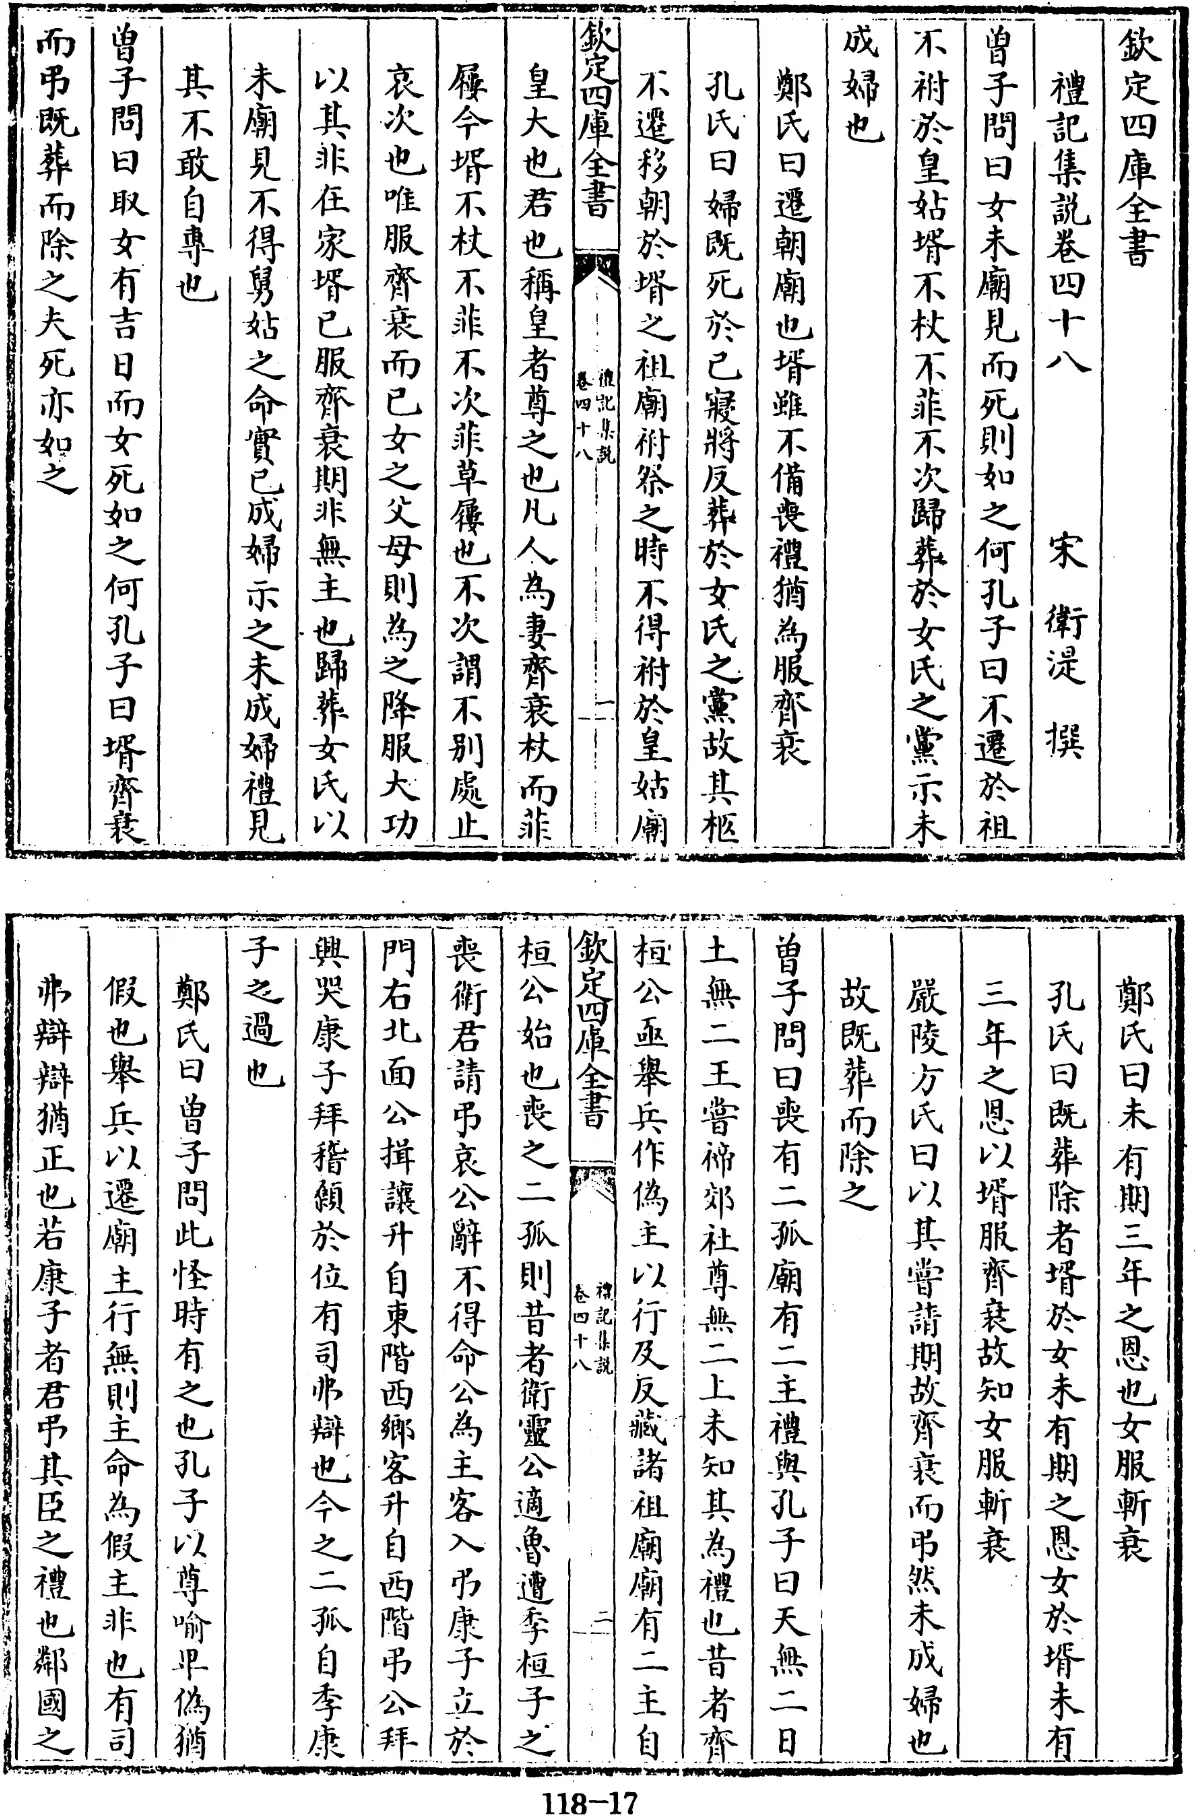 欽定四庫全書
禮記集説卷四十八
宋 衛湜 撰
曾子問曰女未廟見而死則如之何孔子曰不遷於祖
不祔於皇姑壻不杖不菲不次歸葬於女氏之黨示未
成婦也
鄭氏曰遷朝廟也壻雖不備喪禮猶為服齊衰
孔氏曰婦既死於已寢將反葬於女氏之黨故其柩
不遷移朝於壻之祖廟祔祭之時不得祔於皇姑廟
欽定四庫全書
禮記集説
卷四十八
一
皇大也君也稱皇者尊之也凡人為妻齊衰杖而菲
屨今壻不杖不菲不次菲草屨也不次謂不别處止
哀次也唯服齊衰而已女之父母則為之降服大功
以其非在家壻已服齊衰期非無主也歸葬女氏以
未廟見不得舅姑之命實已成婦示之未成婦禮見
其不敢自專也
曾子問曰取女有吉日而女死如之何孔子曰壻齊衰
而弔既葬而除之夫死亦如之
鄭氏曰未有期三年之恩也女服斬衰
孔氏曰既葬除者壻於女未有期之恩女於壻未有
三年之恩以壻服齊衰故知女服斬衰
嚴陵方氏曰以其嘗請期故齊衰而弔然未成婦也
故既葬而除之
曾子問曰喪有二孤廟有二主禮與孔子曰天無二日
土無二王嘗禘郊社尊無二上未知其為禮也昔者齊
桓公亟舉兵作偽主以行及反藏諸祖廟廟有二主自
欽定四庫全書
禮記集説
卷四十八
二
桓公始也喪之二孤則昔者衛靈公適魯遭季桓子之
喪衛君請弔哀公辭不得命公為主客入弔康子立於
門右北面公揖讓升自東階西鄉客升自西階弔公拜
興哭康子拜稽顙於位有司弗辯也今之二孤自季康
子之過也
鄭氏曰曾子問此怪時有之也孔子以尊喻卑偽猶
假也舉兵以遷廟主行無則主命為假主非也有司
弗辯辯猶正也若康子者君弔其臣之禮也鄰國之
118-17